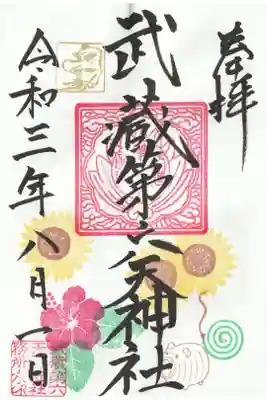 奉拝
武蔵第六天神社
令和三年八月一日